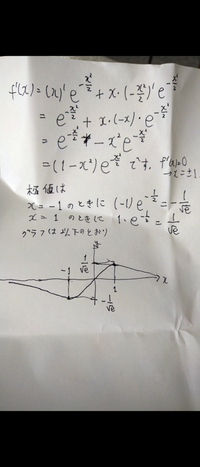 f'(x) = (x)' e^{-x²/2} + x・(-x²/2)' e^{-x²/2}
= e^{-x²/2} + x・(-x)・e^{-x²/2}
= e^{-x²/2} - x² e^{-x²/2}
= (1-x²) e^{-x²/2} です. f'(x)=0
→ x=±1.
極値は
x=-1 のときに (-1) e^{-1/2} = -1/√e
x=1 のときに 1・e^{-1/2} = 1/√e
グラフは以下のとおり
1/√e
-1
1
x
-1/√e